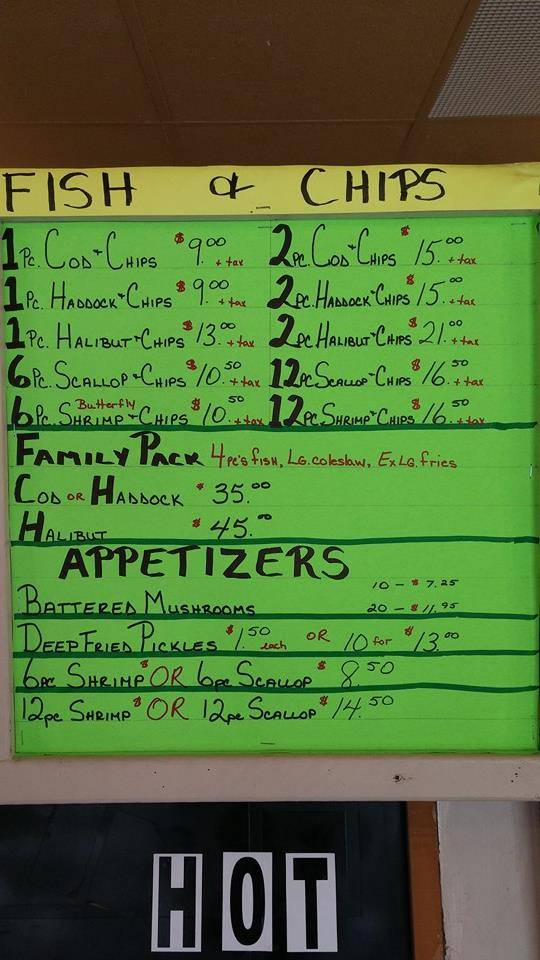 FISH & CHIPS
1 PC. COD & CHIPS $9.00 + tax 2 PC. COD & CHIPS $15.00 + tax
1 PC. HADDOCK & CHIPS $9.00 + tax 2 PC. HADDOCK & CHIPS $15.00 + tax
1 PC. HALIBUT & CHIPS $13.00 + tax 2 PC HALIBUT & CHIPS $21.00 + tax
6 PC. SCALLOP & CHIPS $10.50 + tax 12 PC SCALLOP & CHIPS $16.50 + tax
6 PC. Butterfly SHRIMP & CHIPS $10.50 + tax 12 PC SHRIMP & CHIPS $16.50 + tax
FAMILY PACK 4 pc's fish, LG. coleslaw, Ex LG. fries
COD OR HADDOCK $35.00
HALIBUT $45.00
APPETIZERS
BATTERED MUSHROOMS 10 - $7.25
20 - $11.95
DEEP FRIED PICKLES $1.50 each OR 10 for $13.00
6pc SHRIMP $ OR 6pc SCALLOP $8.50
12pc SHRIMP $ OR 12pc SCALLOP $14.50
HOT